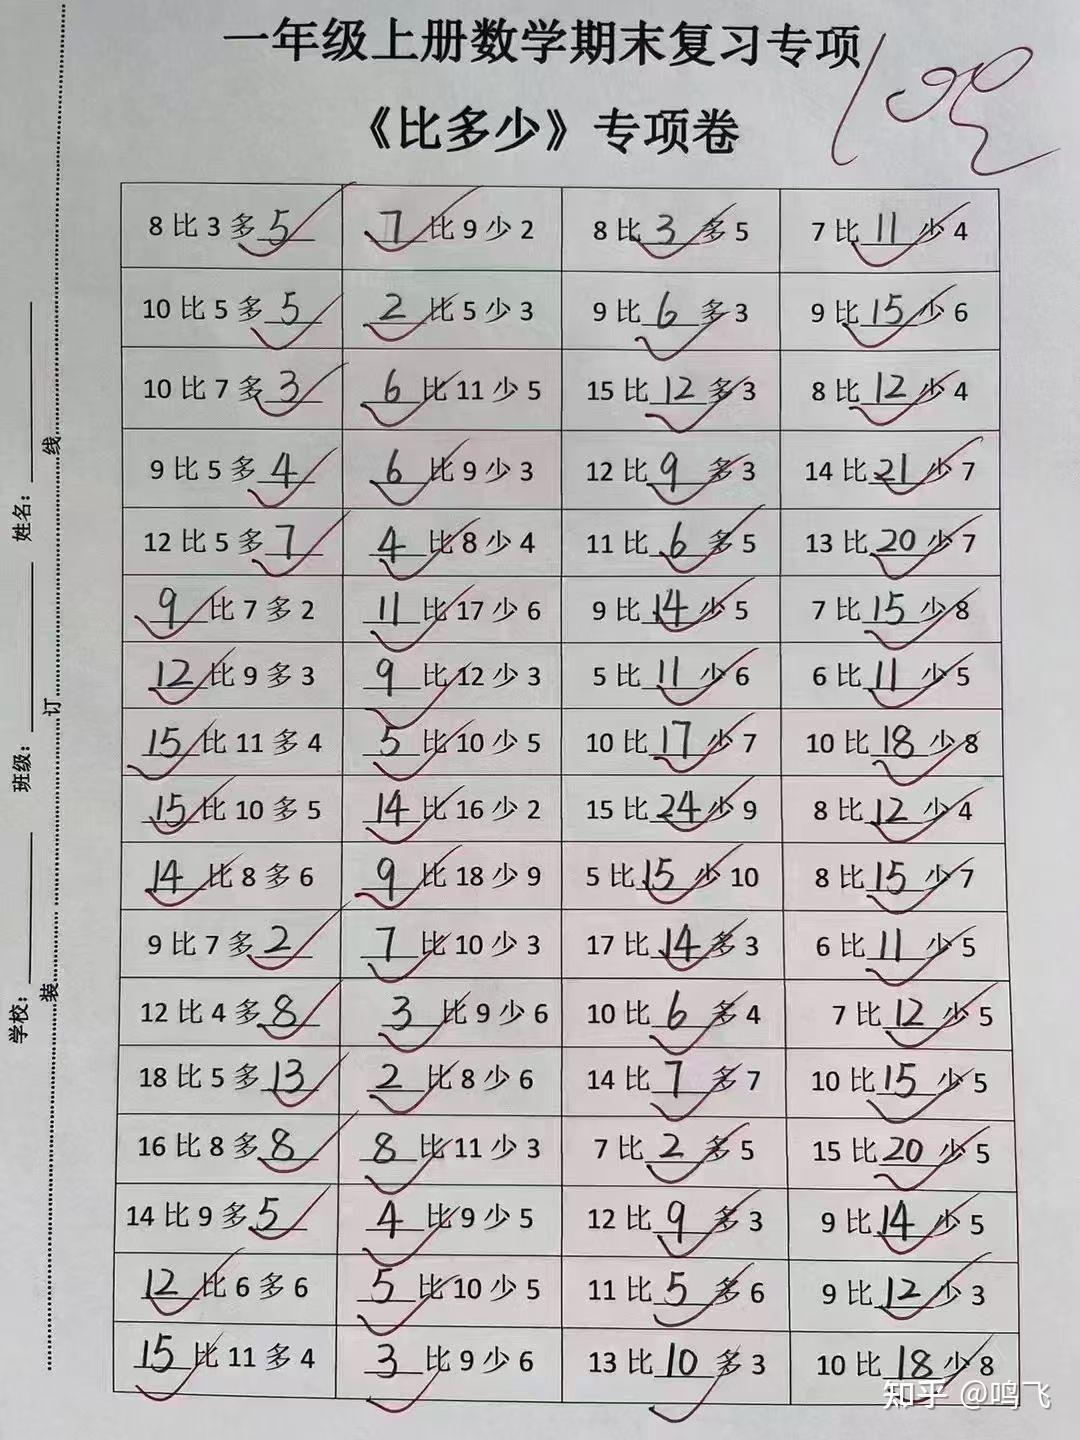 一年级上册数学期末复习专项
《比多少》专项卷
100
8 比 3 多 5 7 比 9 少 2 8 比 3 多 5 7 比 11 少 4
10 比 5 多 5 2 比 5 少 3 9 比 6 多 3 9 比 15 少 6
10 比 7 多 3 6 比 11 少 5 15 比 12 多 3 8 比 12 少 4
9 比 5 多 4 6 比 9 少 3 12 比 9 多 3 14 比 21 少 7
12 比 5 多 7 4 比 8 少 4 11 比 6 多 5 13 比 20 少 7
9 比 7 多 2 11 比 17 少 6 9 比 14 少 5 7 比 15 少 8
12 比 9 多 3 9 比 12 少 3 5 比 11 少 6 6 比 11 少 5
15 比 11 多 4 5 比 10 少 5 10 比 17 少 7 10 比 18 少 8
15 比 10 多 5 14 比 16 少 2 15 比 24 少 9 8 比 12 少 4
14 比 8 多 6 9 比 18 少 9 5 比 15 少 10 8 比 15 少 7
9 比 7 多 2 7 比 10 少 3 17 比 14 多 3 6 比 11 少 5
12 比 4 多 8 3 比 9 少 6 10 比 6 多 4 7 比 12 少 5
18 比 5 多 13 2 比 8 少 6 14 比 7 多 7 10 比 15 少 5
16 比 8 多 8 8 比 11 少 3 7 比 2 多 5 15 比 20 少 5
14 比 9 多 5 4 比 9 少 5 12 比 9 多 3 9 比 14 少 5
12 比 6 多 6 5 比 10 少 5 11 比 5 多 6 9 比 12 少 3
15 比 11 多 4 3 比 9 少 6 13 比 10 多 3 10 比 18 少 8
学校: 班级: 姓名:
装 订 线
知乎 @鸣飞